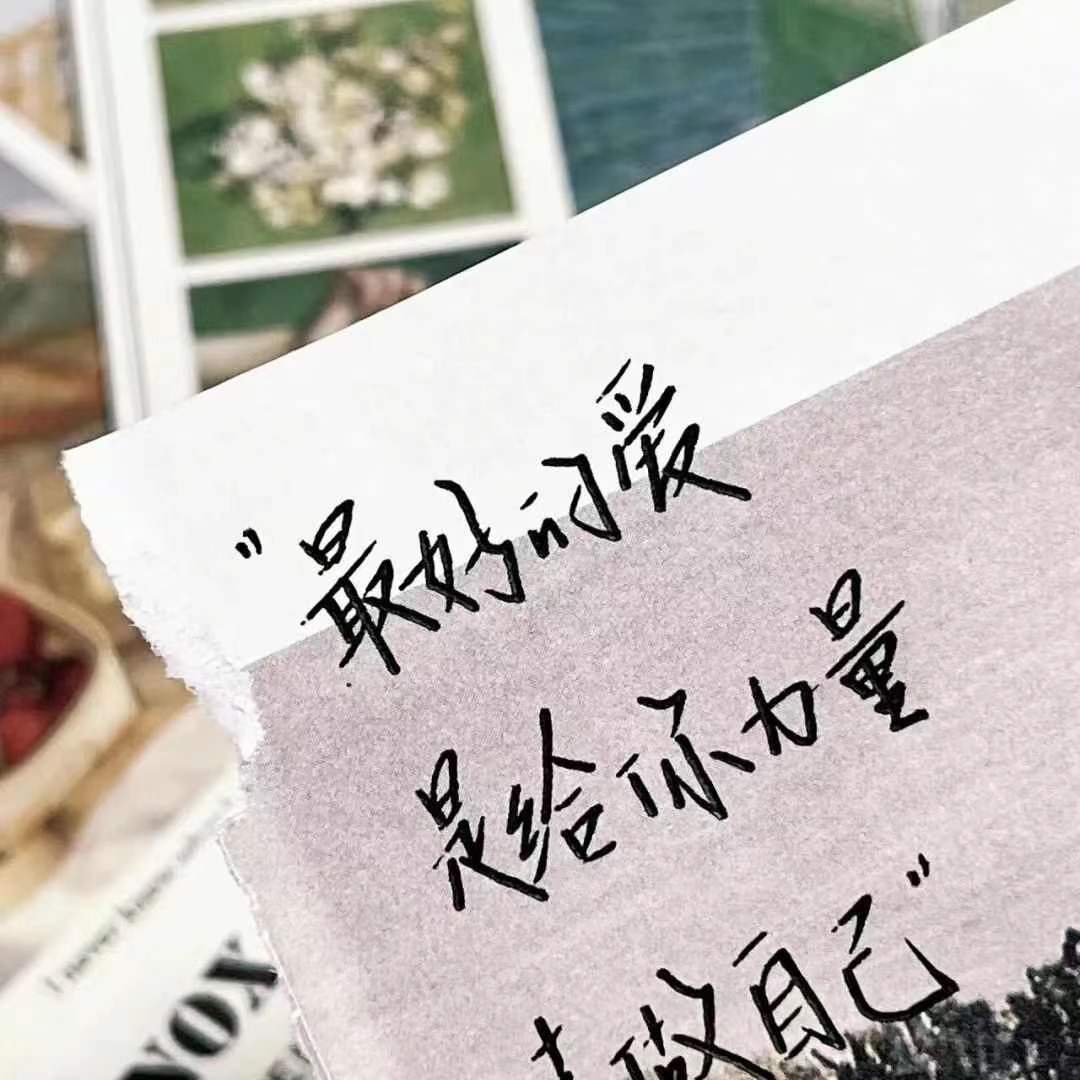 "最好的爱
是给你力量
去做自己"
I never knew
VOX